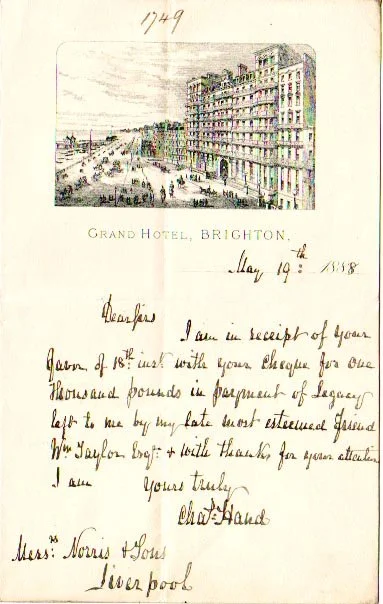 1749
GRAND HOTEL, BRIGHTON.
May 19th 1888
Dear Sirs
I am in receipt of your
favor of 18th inst with your cheque for one
thousand pounds in payment of Legacy
left to me by my late most esteemed friend
Wm Taylor Esqr + with thanks for your attention
I am yours truly
Chas. Hand
Messrs Norris & Sons
Liverpool